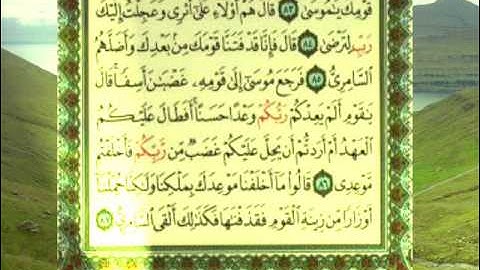 قَوْمِكَ يَٰمُوسَىٰ ٨٣ قَالَ هُمْ أُو۟لَآءِ عَلَىٰٓ أَثَرِى وَعَجِلْتُ إِلَيْكَ
رَبِّ لِتَرْضَىٰ ٨٤ قَالَ فَإِنَّا قَدْ فَتَنَّا قَوْمَكَ مِنۢ بَعْدِكَ وَأَضَلَّهُمُ
ٱلسَّامِرِىُّ ٨٥ فَرَجَعَ مُوسَىٰٓ إِلَىٰ قَوْمِهِۦ غَضْبَٰنَ أَسِفًا قَالَ
يَٰقَوْمِ أَلَمْ يَعِدْكُمْ رَبُّكُمْ وَعْدًا حَسَنًا أَفَطَالَ عَلَيْكُمُ
ٱلْعَهْدُ أَمْ أَرَدتُّمْ أَن يَحِلَّ عَلَيْكُمْ غَضَبٌ مِّن رَّبِّكُمْ فَأَخْلَفْتُم
مَّوْعِدِى ٨٦ قَالُوا۟ مَآ أَخْلَفْنَا مَوْعِدَكَ بِمَلْكِنَا وَلَٰكِنَّا حُمِّلْنَآ
أَوْزَارًا مِّن زِينَةِ ٱلْقَوْمِ فَقَذَفْنَٰهَا فَكَذَٰلِكَ أَلْقَى ٱلسَّامِرِىُّ ٨٧